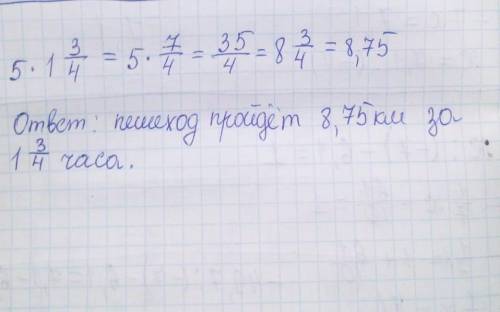 5 · 1 3/4 = 5 · 7/4 = 35/4 = 8 3/4 = 8,75
Ответ: пешеход пройдёт 8,75 км за
1 3/4 часа.